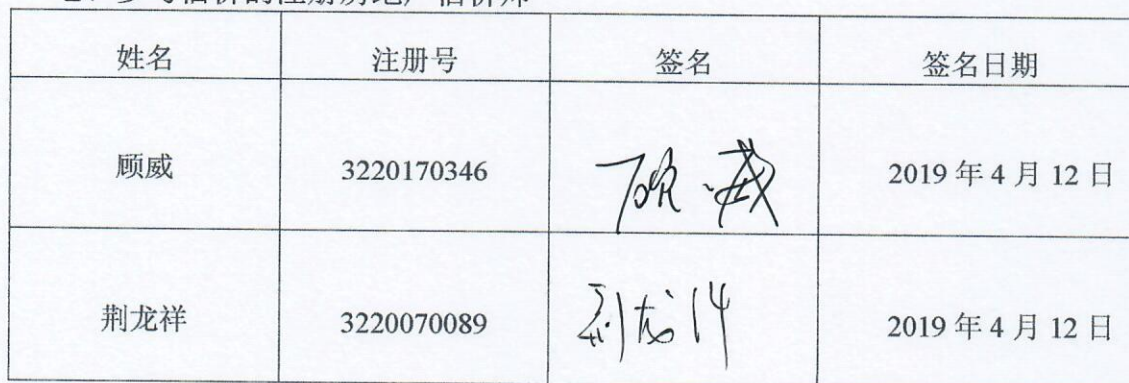 姓名 注册号 签名 签名日期
顾威 3220170346 顾威 2019年4月12日
荆龙祥 3220070089 荆龙祥 2019年4月12日